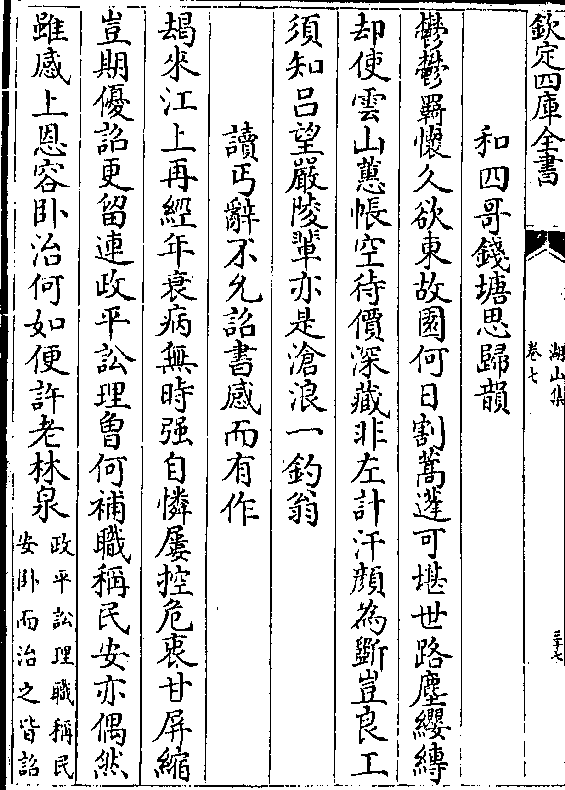 欽定四庫全書
湖山集
卷七
三十七
和四哥錢塘思歸韻
鬱鬱羈懷久欲東故園何日割蒿蓬可堪世路塵纓縛
却使雲山蕙帳空待價深藏非左計汗顔為斵豈良工
須知吕望嚴陵輩亦是滄浪一釣翁
讀丐辭不允詔書感而有作
朅來江上再經年衰病無時强自憐屢控危衷甘屏縮
豈期優詔更留連政平訟理曾何補職稱民安亦偶然
雖感上恩容卧治何如便許老林泉
政平訟理職稱民
安卧而治之皆詔